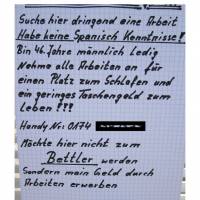 Suche hier dringend eine Arbeit
Habe keine Spanisch Kenntnisse!
Bin 46 Jahre männlich Ledig
Nehme alle Arbeiten an für
einen Platz zum Schlafen und
ein geringes Taschengeld zum
Leben !!!
Handy Nr: 0174
Möchte hier nicht zum
Bettler werden
Sondern mein Geld durch
Arbeiten erwerben